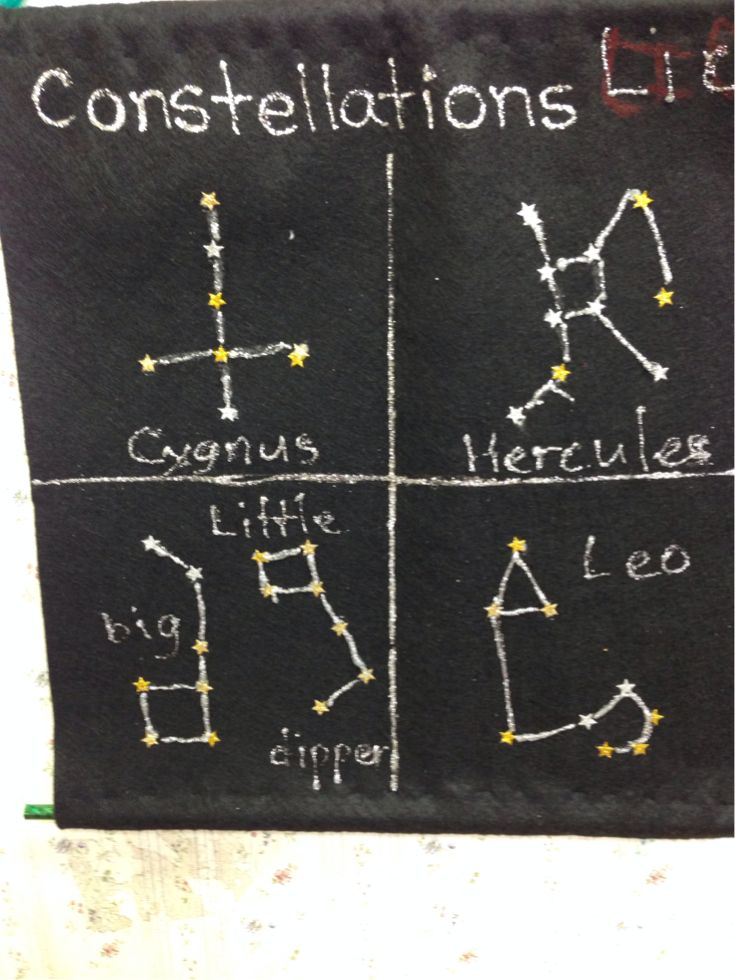 Constellations
Cygnus
Hercules
Little
big
dipper
Leo